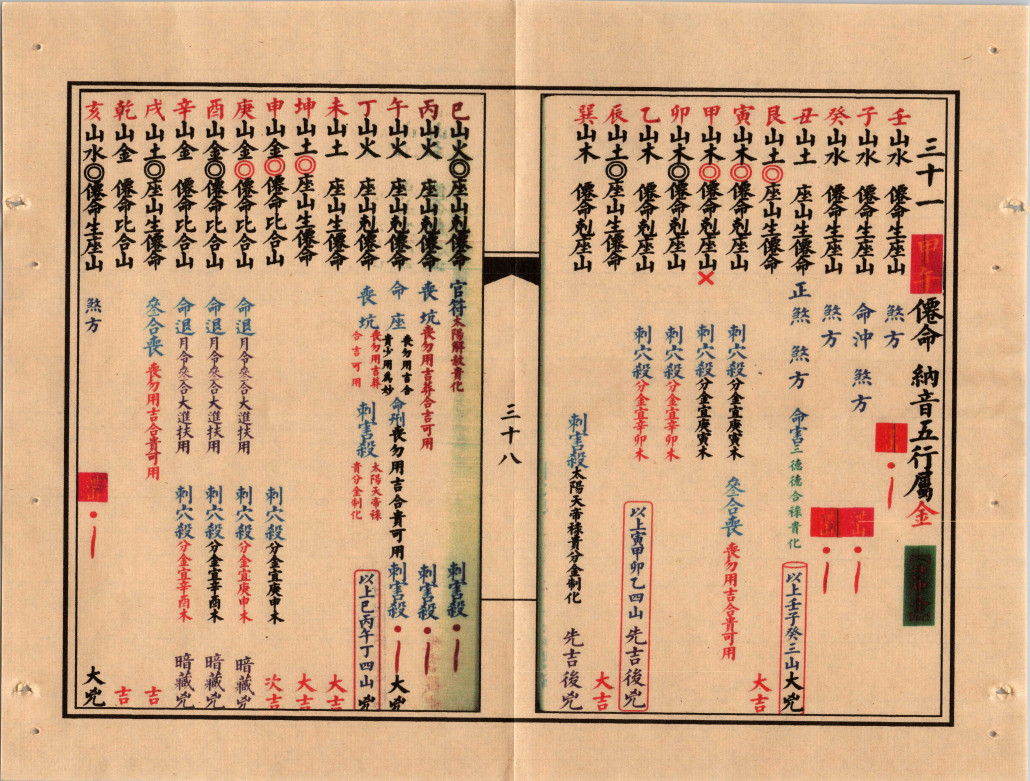 三十一 甲午 僊命 納音五行屬金
壬山水 僊命生座山 煞方
子山水 僊命生座山 命沖 煞方
癸山水 僊命生座山 煞方
以上壬子癸三山大兇
丑山土 座山生僊命 正煞 煞方 命害三德德合祿貴化
艮山土◎座山生僊命 大吉
寅山木◎僊命剋座山 刺穴殺分金宜庚寅木 叄合喪 喪勿用吉合貴可用
甲山木◎僊命剋座山× 刺穴殺分金宜庚寅木
卯山木◎僊命剋座山 刺穴殺分金宜辛卯木
乙山木 僊命剋座山 刺穴殺分金宜辛卯木
以上寅甲卯乙四山 先吉後兇
辰山土◎座山生僊命 大吉
巽山木 僊命剋座山 刺害殺太陽天帝祿貴分金制化 先吉後兇
三十八
巳山火◎座山剋僊命 官符太陽解敵貴化 刺害殺
丙山火 座山剋僊命 喪坑喪勿用吉葬合吉可用 刺害殺
午山火◎座山剋僊命 命座喪勿用吉合貴少用為妙 命刑喪勿用吉合貴可用 刺害殺 大兇
丁山火 座山剋僊命 喪坑喪勿用吉葬合吉可用 刺害殺太陽天帝祿貴分金制化
以上巳丙午丁四山 兇
未山土 座山生僊命 大吉
坤山土◎座山生僊命 大吉
申山金◎僊命比合山 刺穴殺分金宜庚申木 次吉
庚山金◎僊命比合山 命退月令叄合大進扶用 刺穴殺分金宜庚申木 暗藏兇
酉山金◎僊命比合山 命退月令叄合大進扶用 刺穴殺分金宜辛酉木 暗藏兇
辛山金 僊命比合山 命退月令叄合大進扶用 刺穴殺分金宜辛酉木 暗藏兇
戌山土◎座山生僊命 叄合喪喪勿用吉合貴可用 吉
乾山金 僊命比合山 吉
亥山水◎僊命生座山 煞方 大兇